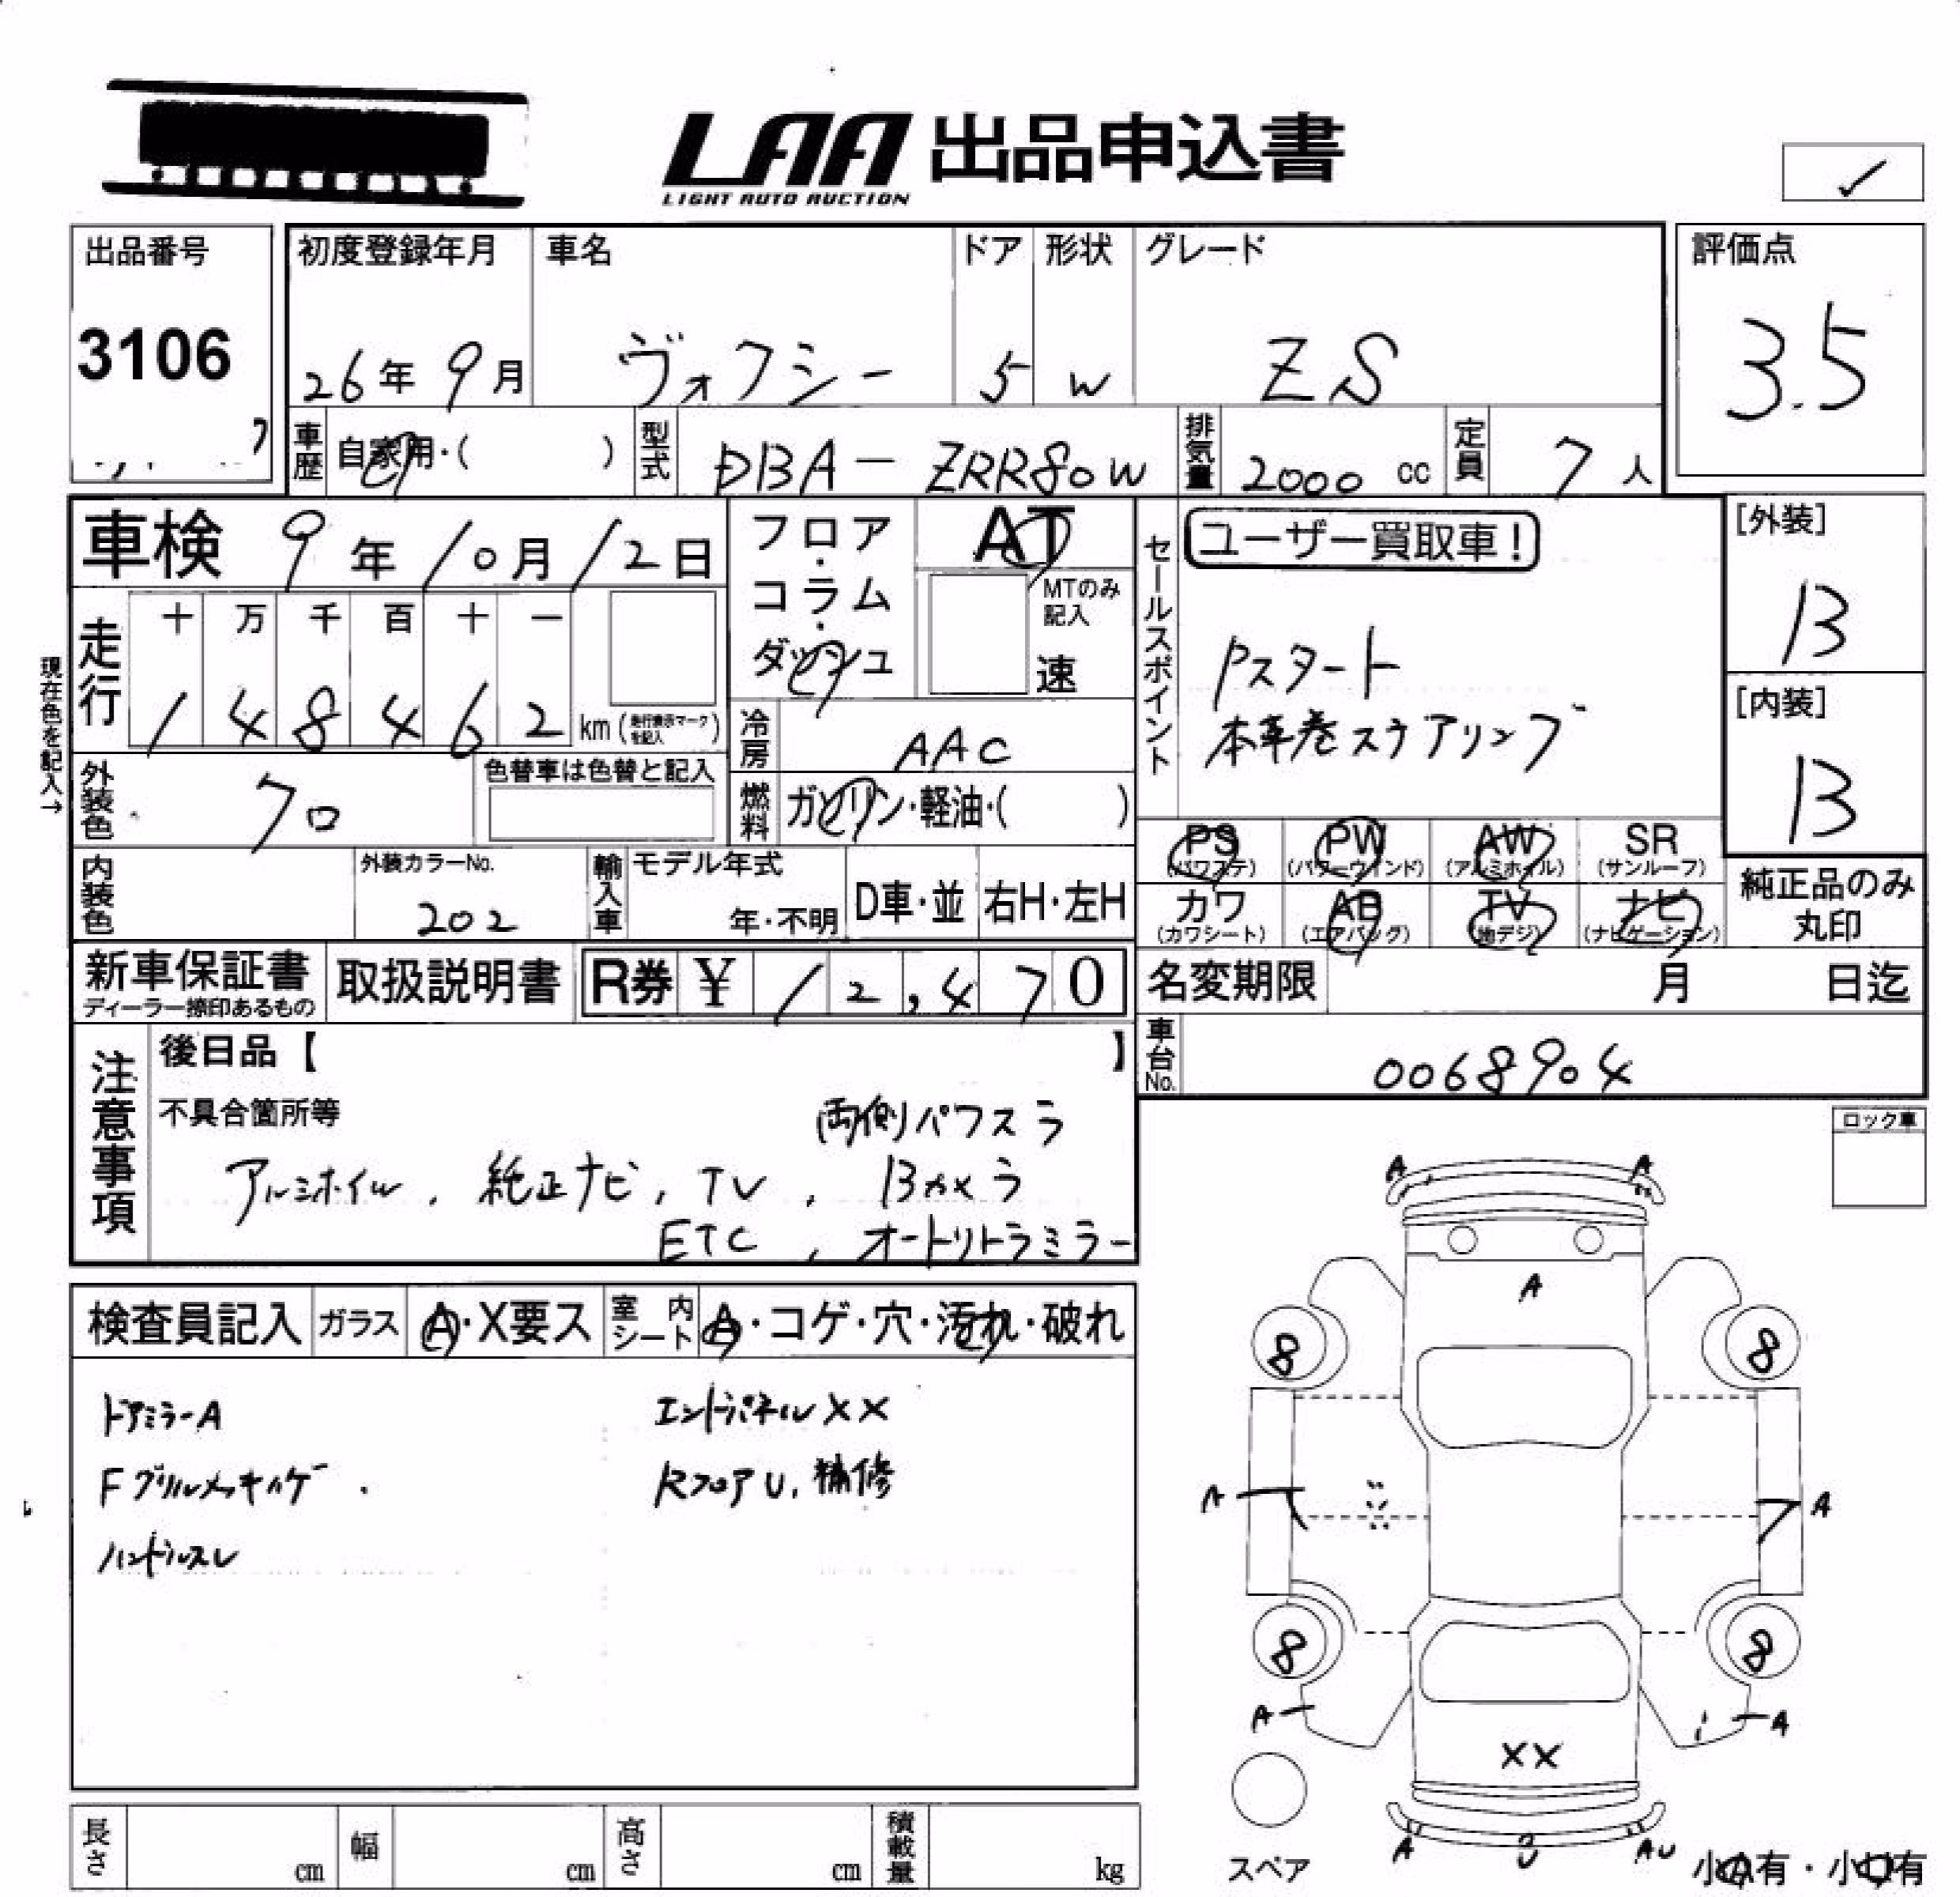 LAA 出品申込書
LIGHT AUTO AUCTION
✓
出品番号
3106
初度登録年月
26年 9月
車名
ヴォクシー
ドア
5
形状
W
グレード
ZS
評価点
3.5
車歴
自家用・( )
型式
DBA－ZRR80W
排気量
2000 cc
定員
7 人
車検 9年 10月 12日
フロア・コラム・ダッシュ
AT
MTのみ記入
速
セールスポイント
ユーザー買取車！
Pスタート
本革巻ステアリング
[外装]
B
[内装]
B
現在色を記入→
走行
十 万 千 百 十 一
1 4 8 4 6 2 km (走行表示マークを記入)
冷房
AAC
外装色
クロ
色替車は色替と記入
燃料
ガソリン・軽油・( )
PS (パワステ)
PW (パワーウインド)
AW (アルミホイル)
SR (サンルーフ)
カワ (カワシート)
AB (エアバッグ)
TV (地デジ)
ナビ (ナビゲーション)
純正品のみ
丸印
内装色
外装カラーNo.
202
輸入車
モデル年式
年・不明
D車・並
右H・左H
新車保証書
ディーラー捺印あるもの
取扱説明書
R券 ¥ 12,470
名変期限 月 日迄
車台No.
0068904
注意事項
後日品【 】
不具合箇所等
両側パワスラ
アルミホイル, 純正ナビ, TV, Bカメラ
ETC, オートリトラミラー
ロック車
検査員記入
ガラス
A・X要ス
室内シート
A・コゲ・穴・汚れ・破れ
ドアミラーA
Fグリルメッキハゲ
ハンドルスレ
エンドパネルXX
RフロアU, 補修
A A
A
8 8
A A
8 8
A A
XX
A AU
スペア
小A有・小U有
長さ cm
幅 cm
高さ cm
積載量 kg